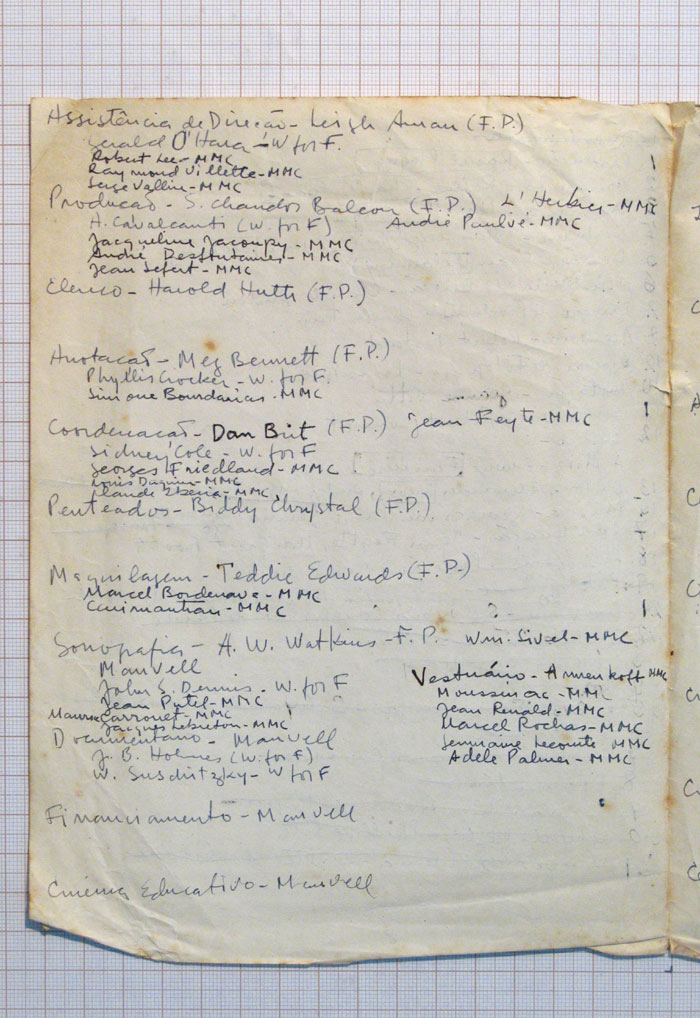 Assistência de Direcão - Leigh Aman (F.P.)
Gerald O'Hara - W for F.
Robert Lee - MMC
Raymond Villette - MMC
Serge Vallin - MMC
Producao - S. Chandos Balcon (F.P.) L'Herbier - MMC
A. Cavalcanti (W. for F) André Paulvé - MMC
Jacqueline Jacoupy - MMC
André Desfontaines - MMC
Jean Sefert - MMC
Elenco - Harold Huth (F.P.)
Anotacaõ - Meg Bennett (F.P.)
Phyllis Crocker - W. for F.
Simone Bourdarias - MMC
Coordenacaõ - Dan Birt (F.P.) Jean Feyte - MMC
Sidney Cole - W. for F
Georges Friedland - MMC
Louis - MMC
Claude - MMC
Penteados - Biddy Chrystal (F.P.)
Maquilagem - Teddie Edwards (F.P.)
Marcel Bordenave - MMC
- MMC
Sonografia - A. W. Watkins - F.P. Wm. Sivel - MMC
Manvell
John S. Dennis - W. for F
Jean Putel - MMC
Maurice Carrouet - MMC
Jacques Lebreton - MMC
Vestuário - Annenkoff MMC
Moussinac - MMC
Jean Renald - MMC
Marcel Rochas - MMC
Germaine Lecomte MMC
Adele Palmer - MMC
Documentario - Manvell
J. B. Holmes (W. for F)
W. Suschitzky - W for F
Financiamento - Manvell
Cinema Educativo - Manvell